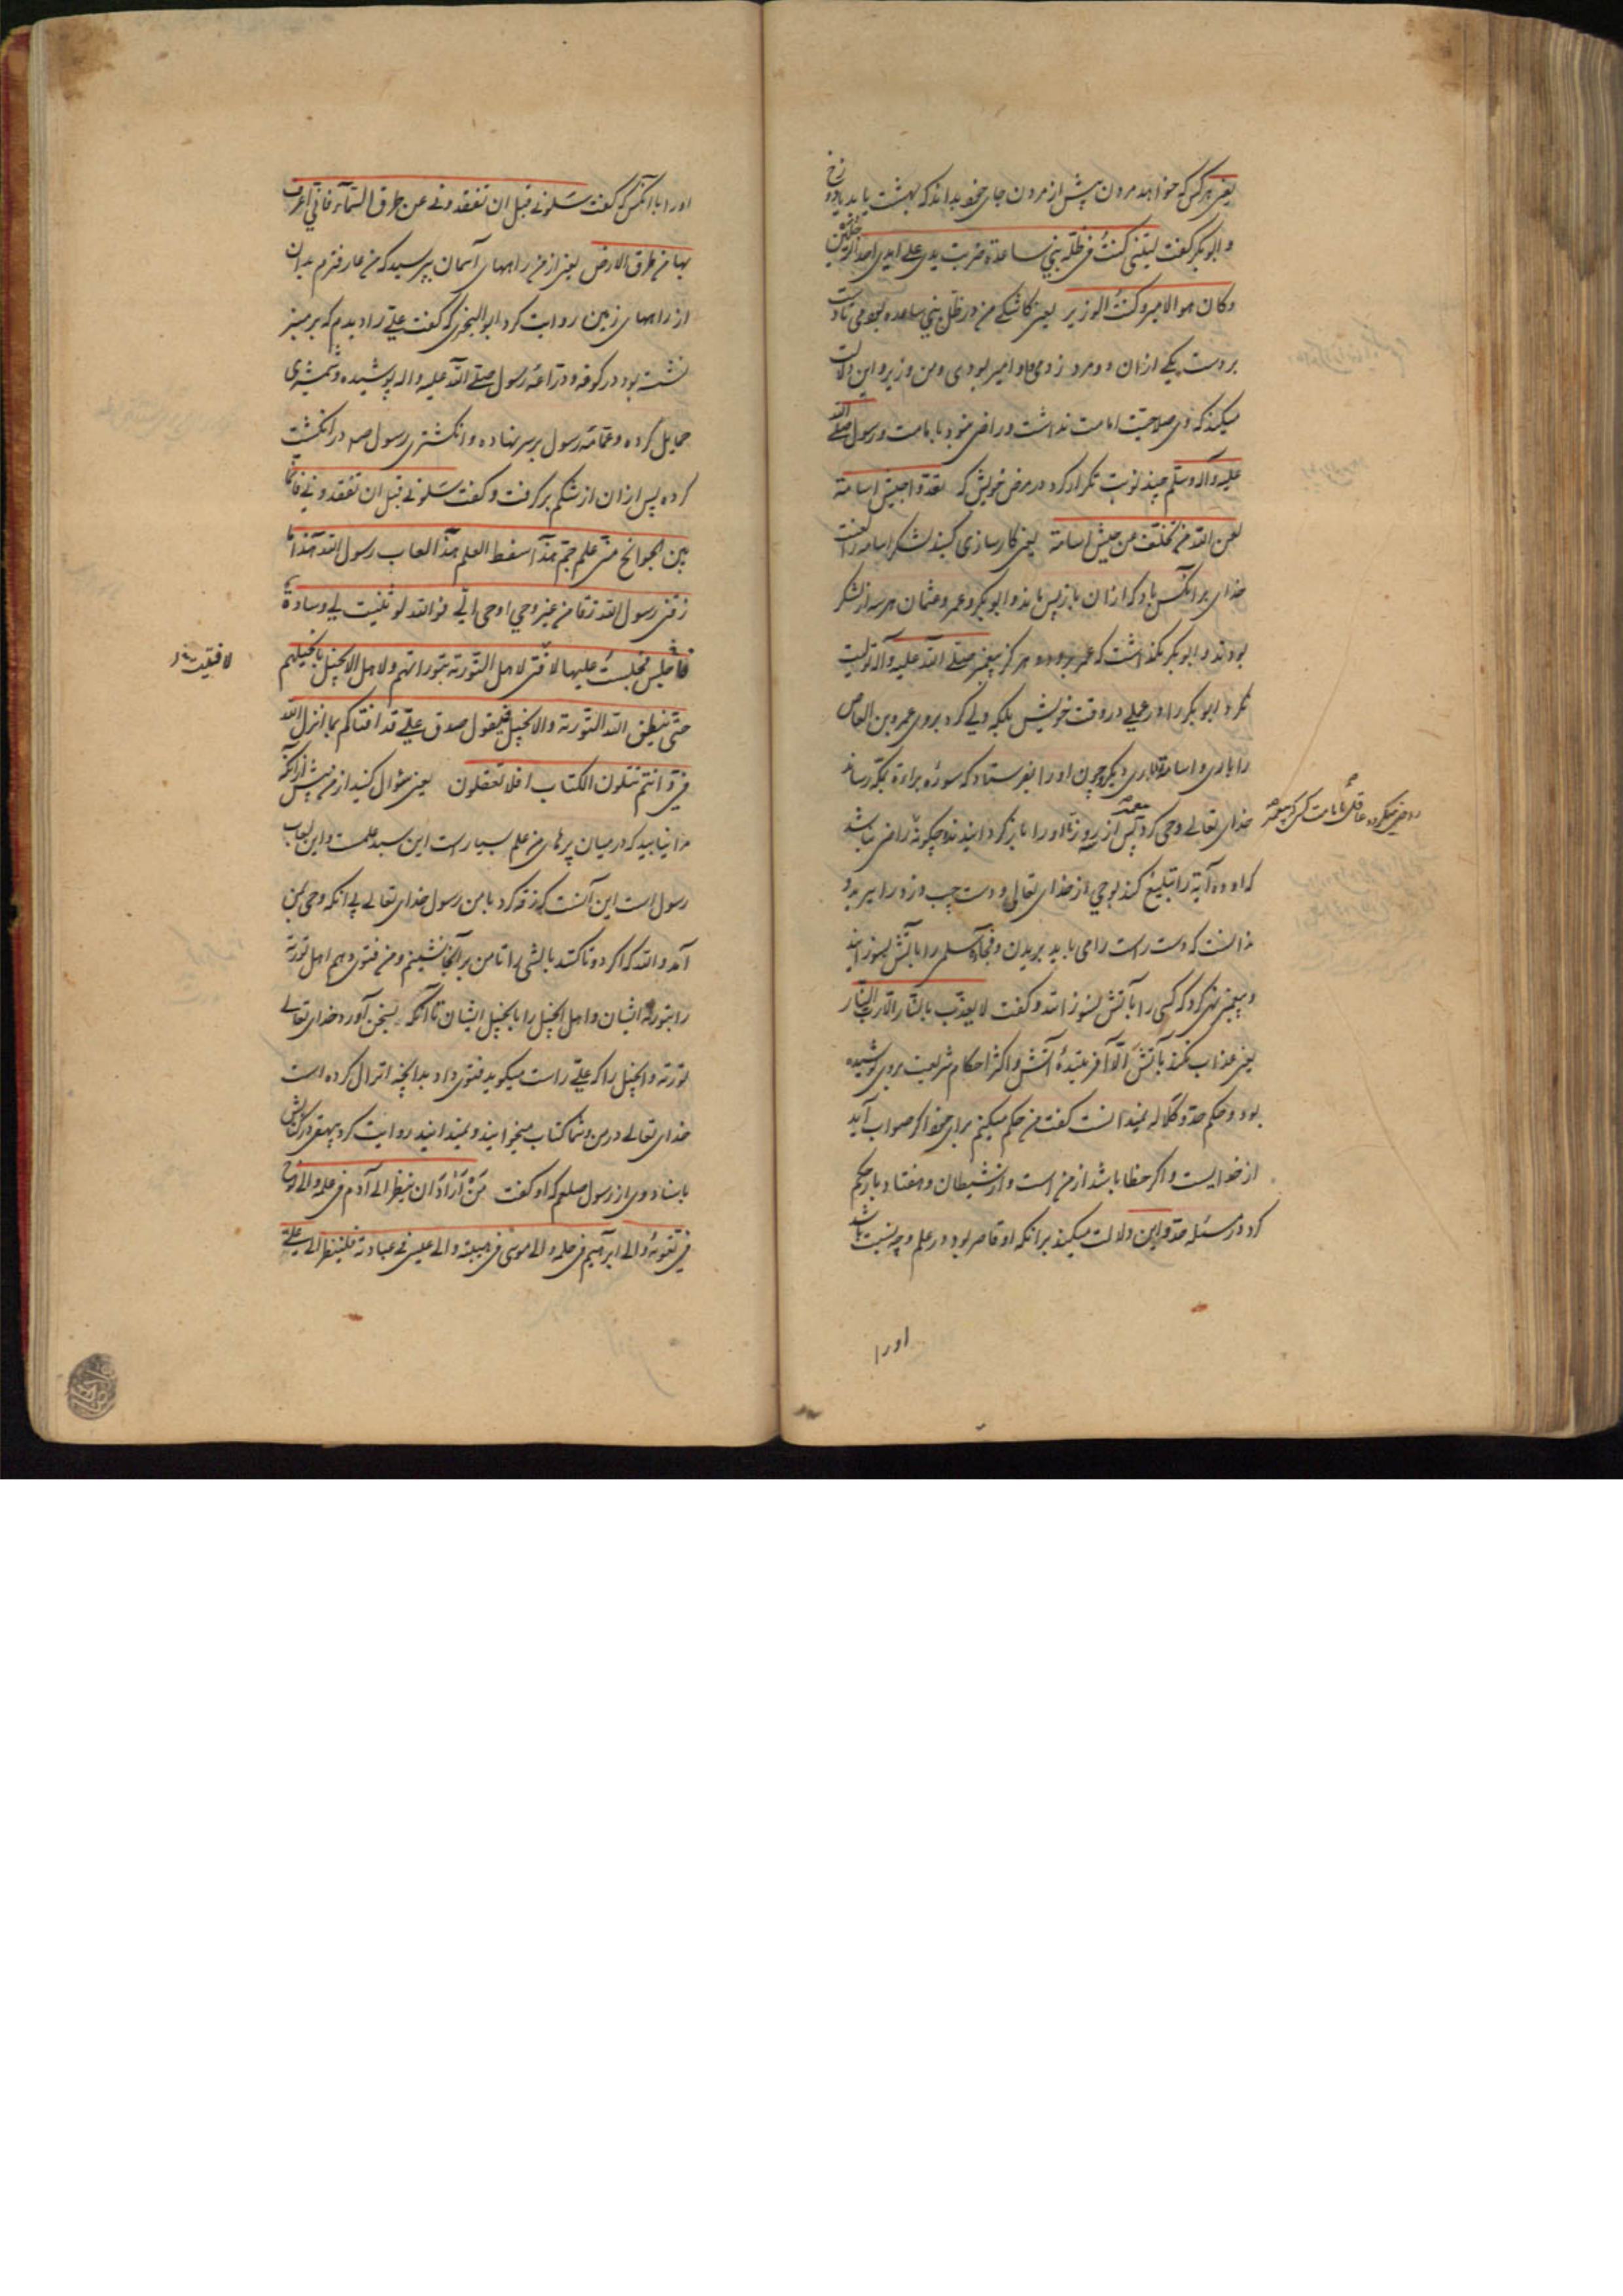 یعنی هر کس که خواهد مردن پیش از مردن جای خود بداند که بهشت یابد یا دوزخ
و ابو بکر کفت لیتنی کنتُ فی ظلّة بنی ساعدة ضربت یدی علی ید احد الرجلین
وکان هو الامیر وکنت الوزیر یعنی کاشکی من در ظل بنی ساعده بودمی تا دست
بر دست یکی از ان دو مرد زدمی و او امیر بودی ومن وزیر و این دلالت
میکند که وی صلاحیت امامت نداشت و راضی نبود بامامت ورسول صلی الله
علیه وآله وسلّم چند نوبت تکرار کرد در مرض خویش که نفذوا جیش اسامة
لعن الله من تخلّف عن جیش اسامة یعنی کارسازی کنید لشکر اسامه را لعنت
خدای بر انکس باد که از ان باز پس ماند و ابو بکر و عمر و عثمان هر سه از لشکر
بودند و ابو بکر نکذاشت که عمر برود و هرکز پیغمبر صلی الله علیه وآله تولیت
نکرد ابو بکر را در عملی در وقت خویش بلکه ولی کرد بر وی عمرو بن العاص
را باری و اسامة را باری دیکر و چون او را بفرستاد که سورهٔ براءة بمکّه رساند
خدای تعالی وحی کرد پس از سه روز تا او را باز کردانیدند و چکونه راضی باشد
رد
که او ده آیة را تبلیغ کند بوحی از خدای تعالی و دست چپ دزد را ببرید و
ندانست که دست راست را می باید بریدن و فجاءة سلمی را باتش بسوزانید
و پیغمبر نهی کرد که کسی را بآتش بسوزانند و کفت لا یعذّب بالنّار الّا ربّ النّار
یعنی عذاب نکند بآتش الّا آفرینندهٔ آتش و اکثر احکام شریعت بر وی پوشیده
بود و حکم جد و کلاله نمیدانست کفت من حکم میکنم برای خود اکر صواب آید
از خدایست و اکر خطا باشد از من است و از شیطان و هفتاد بار حکم
کرد در مسئله جد و این دلالت میکند بر انکه او قاصر بود در علم و چه نسبت باشد
اورا
اورا با آنکس که کفت سَلونی قبل ان تفقدونی عن طرق السّماء فانّی اعرف
بها من طرق الارض یعنی از من راههای آسمان بپرسید که من عارفترم بدان
از راههای زمین روایت کرد ابو البختری که کفت علی را دیدم که بر منبر
نشسته بود در کوفه و درّاعهٔ رسول صلی الله علیه واله پوشیده و شمشیر وی
حمایل کرده و عمّامهٔ رسول بر سر نهاده و انکشتری رسول صلعم در انکشت
کرده پس از ان از شکم برکرفت و کفت سَلونی قبل ان تفقدونی فانّما
بین الجوانح منّی علم جمّ هذا سفط العلم هذا لعاب رسول الله هذا ما
زقّنی رسول الله زقّا من غیر وحی اوحی الیّ فوالله لو ثنیت لی وسادة
فاجلس فجلست علیها لافتی لاهل التّوریة بتوراتهم ولاهل الانجیل بانجیلهم
لافتیت
حتّی ینطق الله التّوریة والانجیل فیقول صدق علیّ قد افتاکم بما انزل الله
فیّ وانتم تتلون الکتاب افلا تعقلون یعنی سؤال کنید از من پیش از آنکه
مرا نیابید که در میان پرهای من علم بسیار است این سبد علمست و این لعاب
رسول است این آنست که زقّه کرد بامن رسول خدای تعالی بی انکه وحی بمن
آمد والله که اکر دو تا کنند بالشی را تا من بر آنجا نشینم و من فتوی دهم اهل توریة
را بتوریة ایشان و اهل انجیل را بانجیل ایشان تا آنکه بسخن آورد خدای تعالی
توریة و انجیل را که علی راست میکوید فتوی داد بدانچه انزال کرده است
خدای تعالی در من و شما کتاب میخوانید و نمیدانید روایت کرد بیهقی در کتابش
باسناد وی از رسول صلعم که او کفت مَنْ اَرادَ ان ینظر الی آدم فی علمه والی نوح
فی تقویٰه والی ابرهیم فی حلمه والی موسی فی هیبته والی عیسی فی عبادته فلینظر الی علی